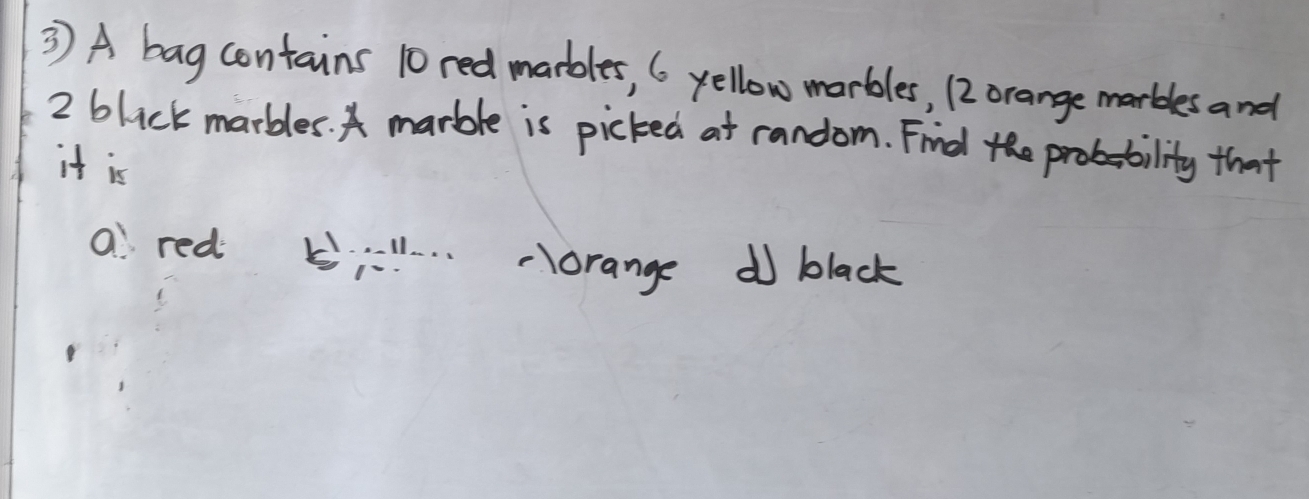 3) A bag contains 10 red marbles, 6 yellow marbles, 12 orange marbles and
2 black marbles. A marble is picked at random. Find the probability that
it is
a) red c) orange d) black